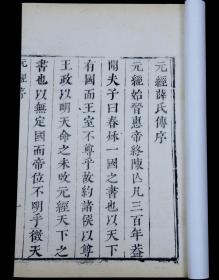 元經薛氏傳序
元經始晉惠帝終陳亡凡三百年蓋
聞夫子曰春秋一國之書也以天下
有國而王室不尊乎故約諸侯以尊
王政以明天命之未改元經天下之
書也以無定國而帝位不明乎徵天
元經序